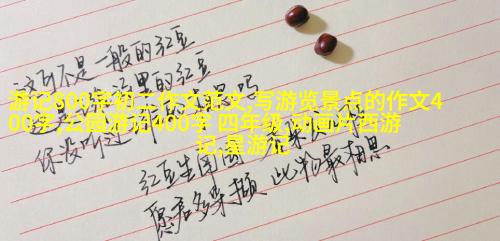 这可不是一般的红豆
这里的红豆
你没听过 吗
游记800字初二作文范文,写游览景点的作文4
00字,公园游记400字 四年级,动画片西游
记,星游记
红豆生南国 春来发几枝
愿君多采撷 此物最相思